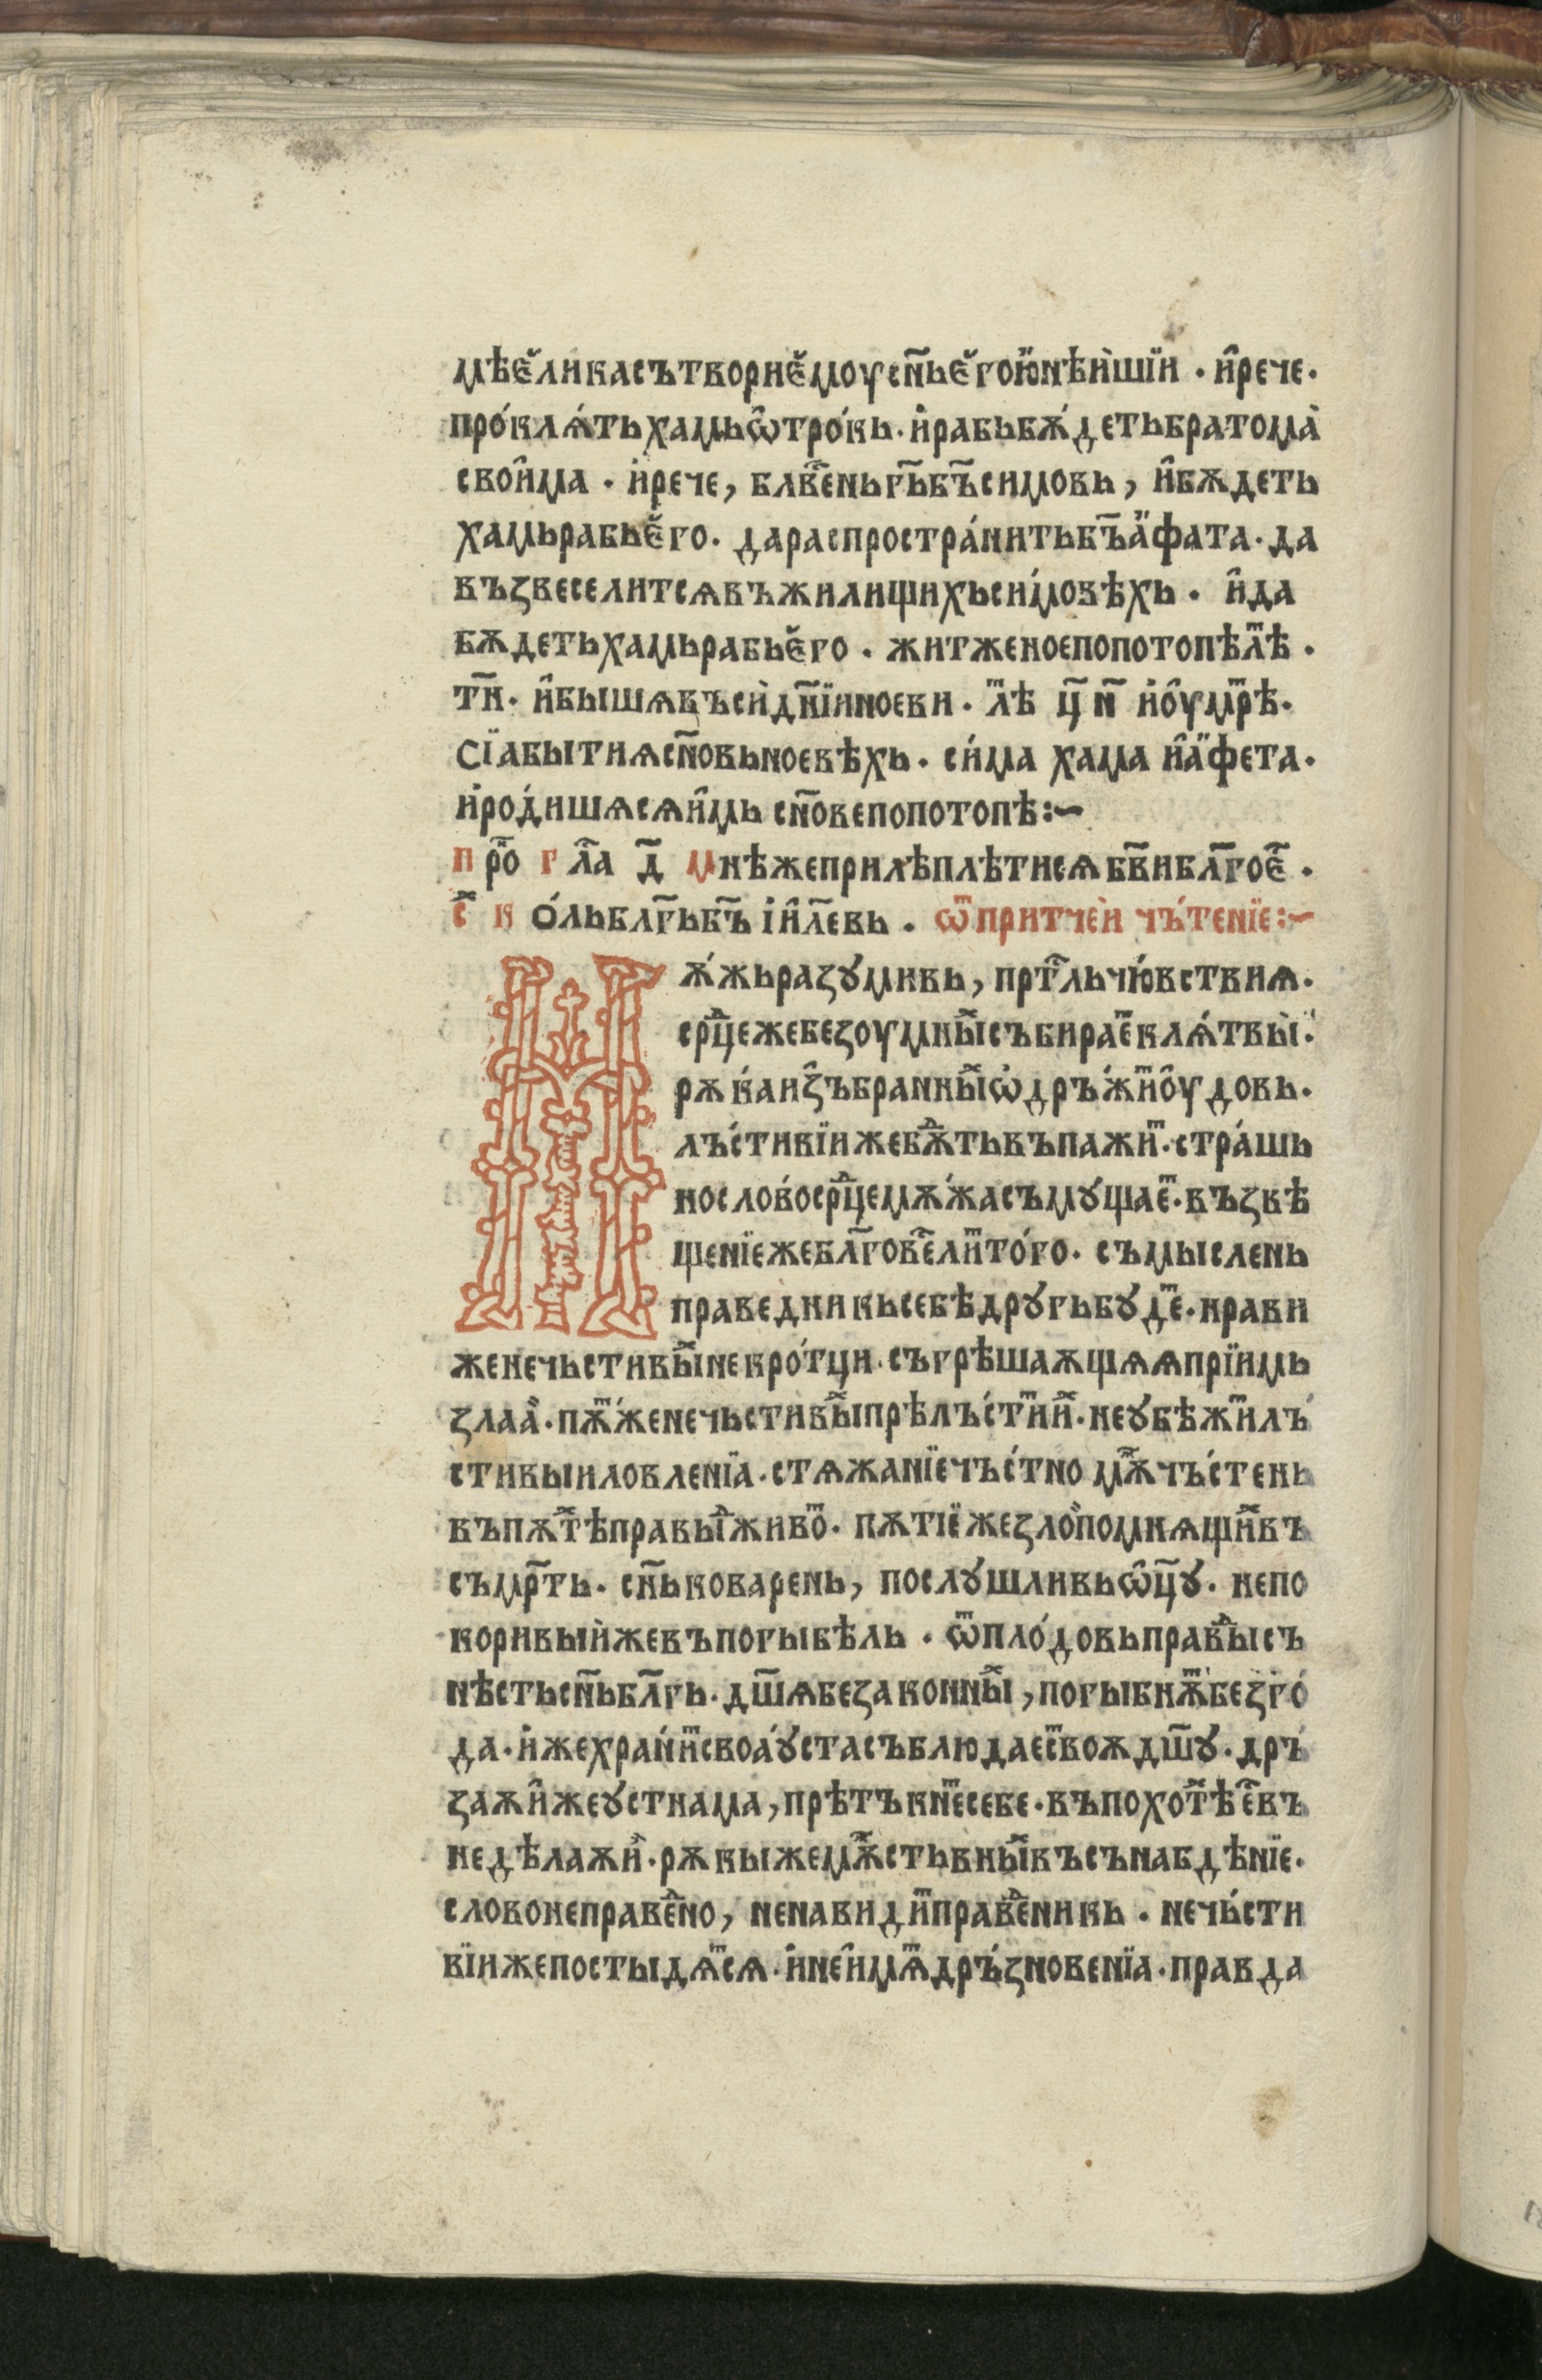 мѣе҆ликасътворие҆моусн҃ье҆гою҆нѣи҆шїи · и҆рече·
про́клѧ́тьхамьѡ҆тро́кь· и҆рабьбѫ́детьбратома̀
свои҆ма · и҆рече, блв҃еньгь҃бъ҃симовь, и҆бѫдеть
хамьрабье҆го· дараспростра́нитьбъ҃а҆фата· да
въꙁвеселитсѧвъжилищихьси́мовѣхь · и҆да
бѫдетьхамьрабье҆го · житженоепопотопѣл҃ѣ ·
т҃н· и҆бышѧвъсѝдн҃їиноеви · л҃ѣ ц҃ н҃ и҆ѹ҆мр҃ѣ·
Сїабытиѧсн҃овьноевѣхь · си́ма хама и҆а҆фета·
и҆ро́дишѧсѧи҆мь сн҃овепопотопѣ:~
п рⷪ҇ г ла҃ д҃ мнѣжеприлѣплѣтисѧбв҃иблг҃ое҃ ·
с҃ к о́льблг҃ьбъ҃ і҆и҆л҃евь · ѿпритчеѝ чъ́тенїе:~
Мѫ́жьраꙁꙋмивь, прⷭ҇тльчю́вствиѧ·
срⷣ҇цежебеꙁоумны҃събирае҃клѧ́твы̀·
рѫка́иꙁ҆ъбранны҃ѡ҆дръ́жи҃ѹ҆довь·
лъ́стивїижебѫ҃тьвъпажи҃· стра́шь
нослово́срⷣ҇цемѫ́жасъмꙋщае҃· въꙁвѣ
щенїежеблг҃ове҃ли҃то́го· съмыслень
праведникьсебѣдрꙋгьбꙋде҃· нрави
женечьстивы҃некро́тци· съгрѣшаѫщѧѧпрїимь
ꙁлаа̀· пѫ҃женечьстивы҃прѣлъ́сти҃и҃· неꙋбѣжи҃лъ́
стивыиловленїа· стѧжанїечъ́стно мѫ҃чъ́стень
въпѫт҃ѣправы҃живо҃· пѫтїе҆жеꙁло̀помнѧщи҃въ
съмр҃ть· сн҃ьковарень, послꙋшливьѡ҆ц҃ꙋ· непо
коривыи҆жевъпогыбѣль · ѿпло́довьправы҃съ
нѣстьсн҃ьблг҃ь· дш҃ѧбеꙁаконны҃, погыбнѫ҃беꙁго́
да· и҆жехрани҃своа́ꙋстасъблюдаес҃воѫдш҃ꙋ· дръ́
ꙁаѫи҆жеꙋстнама, прѣтъкне҃себе· въпохот҃ѣе҃въ
недѣлаѫи҃· рѫкыжемѫ҃стьвны҃въсънабдѣнїе·
словонеправе҃но, ненавиди҃праве҃никь · нечь́сти
вїижепостыдѧ҃сѧ· и҆неи҆мѧ҃дръ́ꙁновенїа· правда